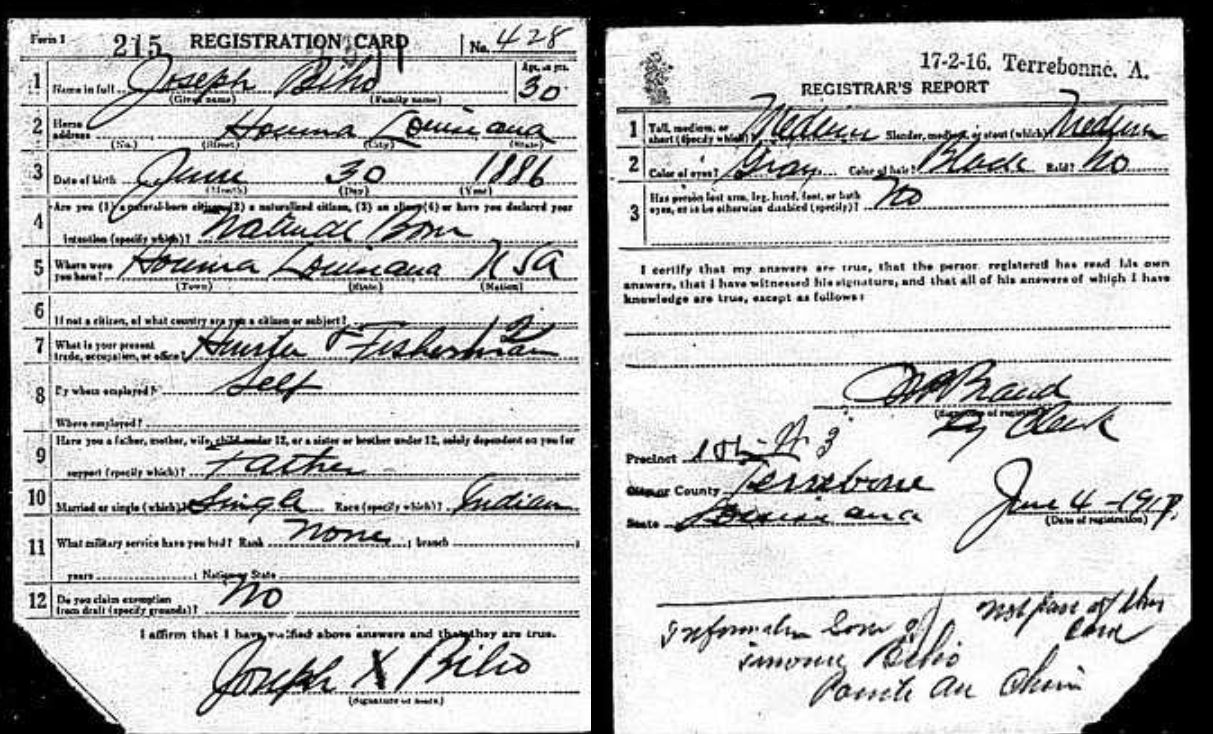 Form 1 215 REGISTRATION CARD No. 428
1 Name in full Joseph Biho Age, in yrs. 30
(Given name) (Family name)
2 Home address Houma Louisiana
(No.) (Street) (City) (State)
3 Date of birth June 30 1886
(Month) (Day) (Year)
4 Are you (1) a natural-born citizen, (2) a naturalized citizen, (3) an alien, (4) or have you declared your
intention (specify which)? Natural Born
5 Where were you born? Houma Louisiana USA
(Town) (State) (Nation)
6 If not a citizen, of what country are you a citizen or subject?
7 What is your present trade, occupation, or office? Hunter & Fisherman
8 By whom employed? Self
Where employed?
9 Have you a father, mother, wife, child under 12, or a sister or brother under 12, solely dependent on you for
support (specify which)? Father
10 Married or single (which)? Single Race (specify which)? Indian
11 What military service have you had? Rank None ; branch ;
years ; Nation or State
12 Do you claim exemption from draft (specify grounds)? No
I affirm that I have verified above answers and that they are true.
Joseph X Biho
(Signature or mark)
17-2-16. Terrebonne. A.
REGISTRAR'S REPORT
1 Tall, medium, or short (specify which)? Medium Slender, medium, or stout (which)? Medium
2 Color of eyes? Gray Color of hair? Black Bald? No
3 Has person lost arm, leg, hand, foot, or both
eyes, or is he otherwise disabled (specify)? No
I certify that my answers are true, that the person registered has read his own
answers, that I have witnessed his signature, and that all of his answers of which I have
knowledge are true, except as follows:
Braud
(Signature of registrar)
Clerk
Precinct 10th 3
City or County Terrebonne
State Louisiana
June 4-1917.
(Date of registration)
not part of this
card
Information Son of
Biho
Pointe Au Chien